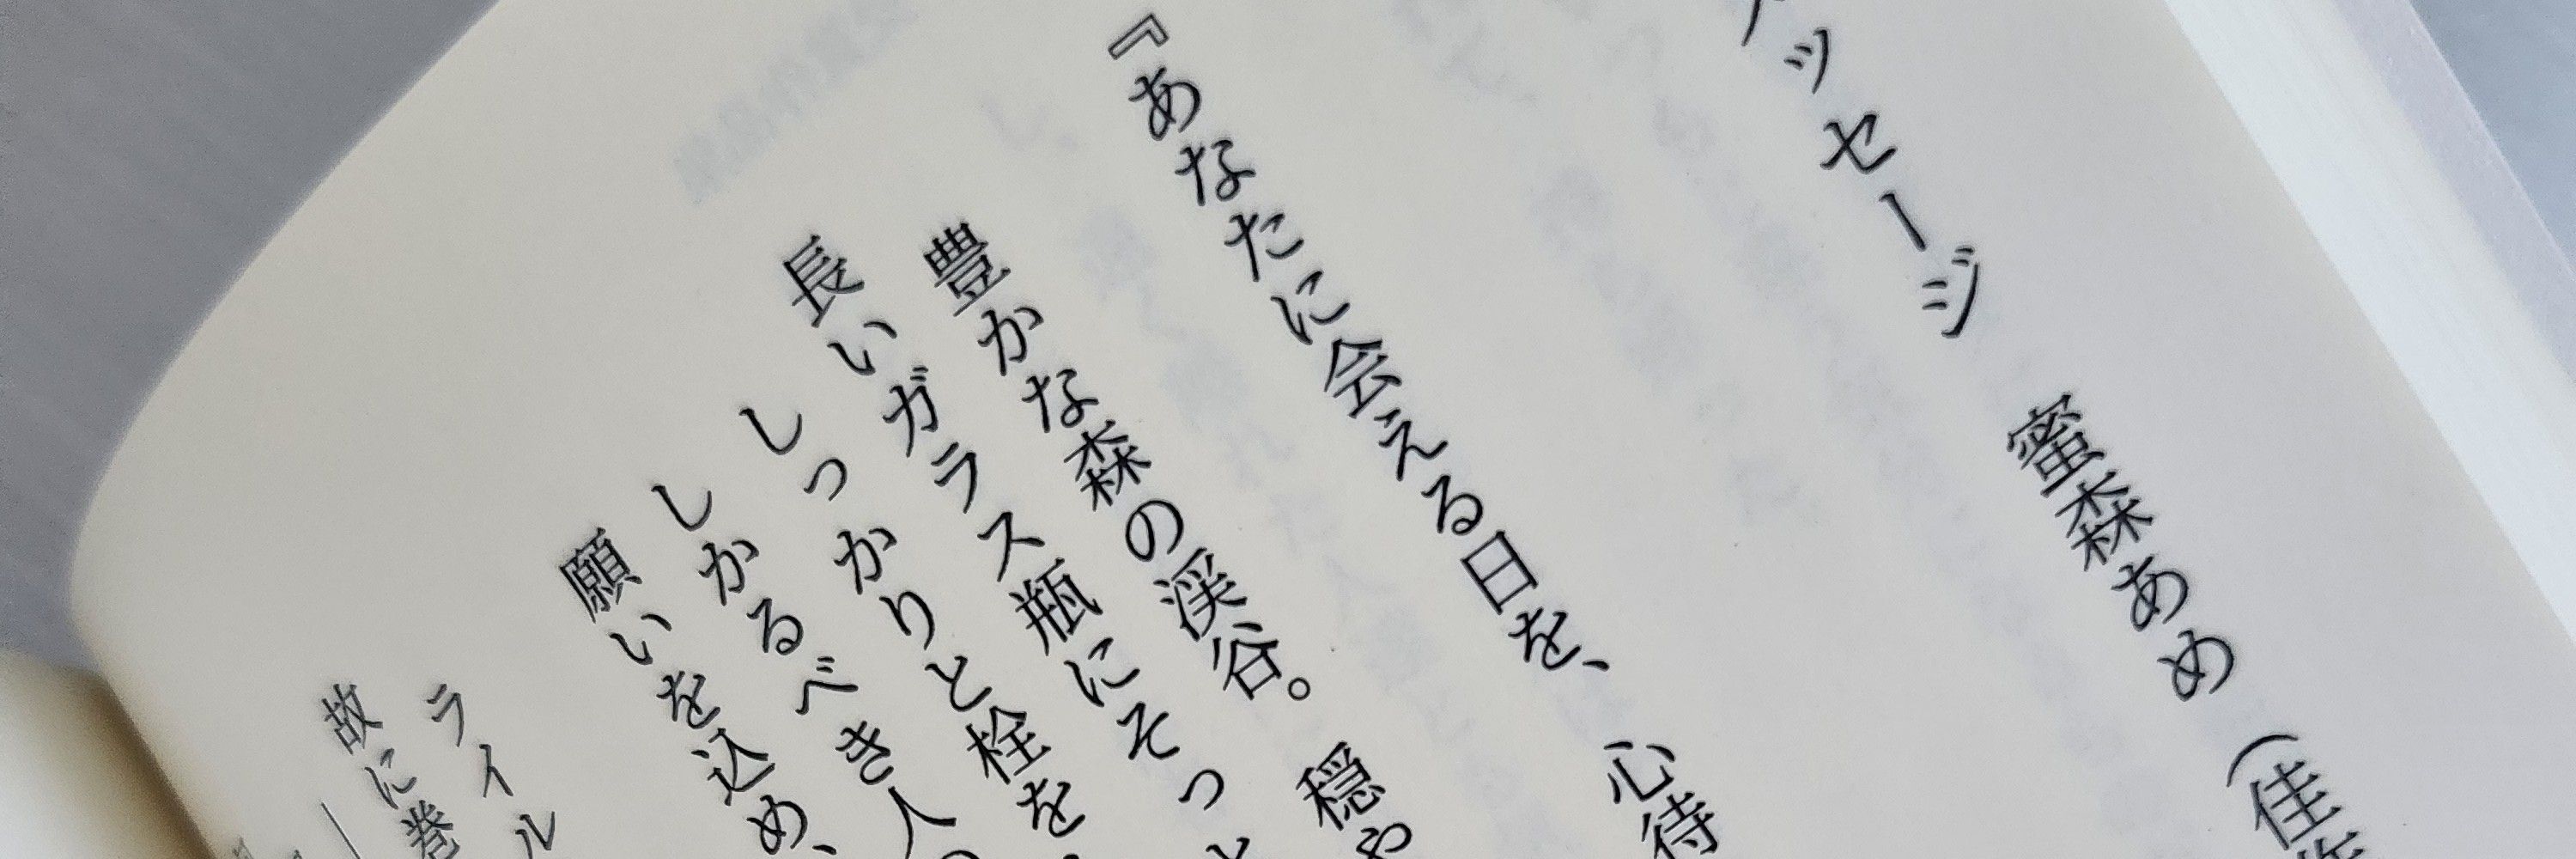 ッセージ 蜜森あめ（佳
『あなたに会える日を、心待
豊かな森の渓谷。穏や
長いガラス瓶にそっと
しっかりと栓を
しかるべき人
願いを込め、
ライル
故に巻